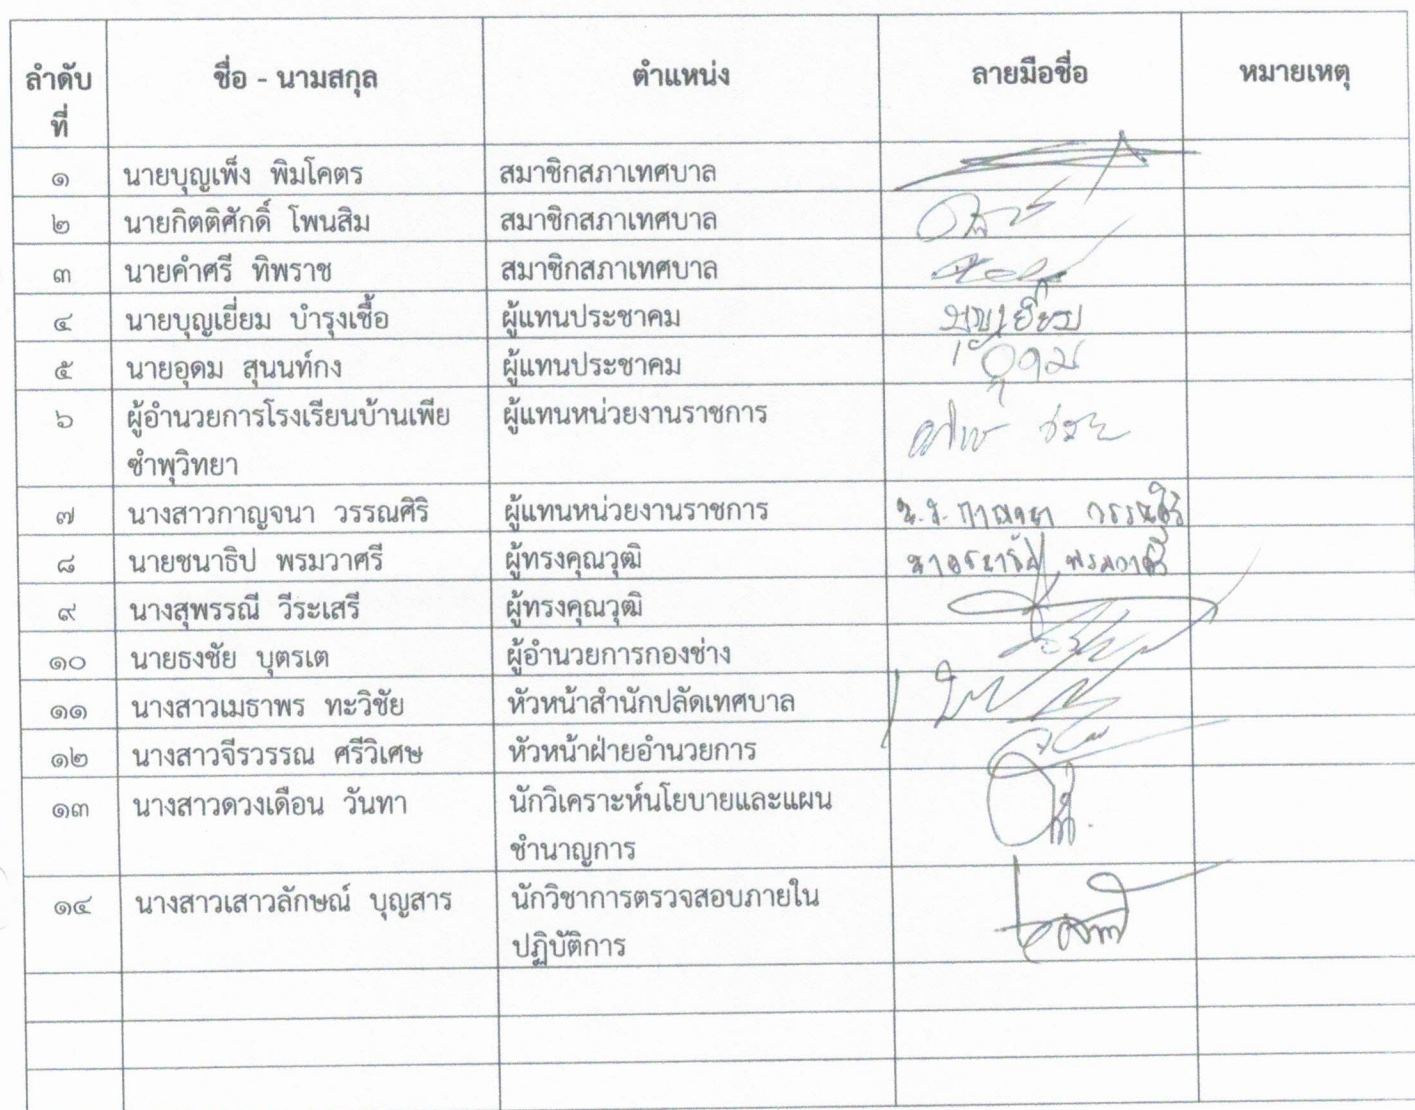 ลำดับ ชื่อ - นามสกุล ตำแหน่ง ลายมือชื่อ หมายเหตุ
ที่
๑ นายบุญเพ็ง พิมโคตร สมาชิกสภาเทศบาล
๒ นายกิตติศักดิ์ โพนสิม สมาชิกสภาเทศบาล
๓ นายคำศรี ทิพราช สมาชิกสภาเทศบาล
๔ นายบุญเยี่ยม บำรุงเชื้อ ผู้แทนประชาคม บุญเยี่ยม
๕ นายอุดม สุนนท์กง ผู้แทนประชาคม อุดม
๖ ผู้อำนวยการโรงเรียนบ้านเพีย ผู้แทนหน่วยงานราชการ
ซำพุวิทยา
๗ นางสาวกาญจนา วรรณศิริ ผู้แทนหน่วยงานราชการ น.ส. กาญจนา วรรณศิริ
๘ นายชนาธิป พรมวาศรี ผู้ทรงคุณวุฒิ นายชนาธิป พรมวาศรี
๙ นางสุพรรณี วีระเสรี ผู้ทรงคุณวุฒิ
๑๐ นายธงชัย บุตรเต ผู้อำนวยการกองช่าง
๑๑ นางสาวเมธาพร ทะวิชัย หัวหน้าสำนักปลัดเทศบาล
๑๒ นางสาวจีรวรรณ ศรีวิเศษ หัวหน้าฝ่ายอำนวยการ
๑๓ นางสาวดวงเดือน วันทา นักวิเคราะห์นโยบายและแผน
ชำนาญการ
๑๔ นางสาวเสาวลักษณ์ บุญสาร นักวิชาการตรวจสอบภายใน
ปฏิบัติการ